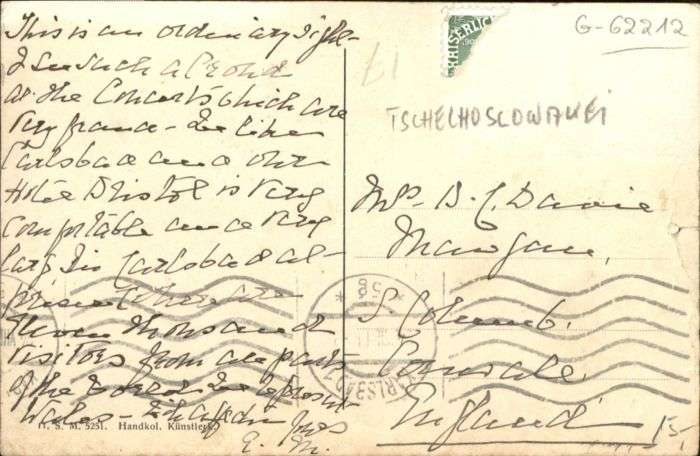 This is an ordinary sight -
I see such a crowd
at the Concerts which are
very grand - We like
Carlsbad and our
Hotel Bristol is very
comfortable and a very
large In Carlsbad at
present there are
Eleven thousand
visitors from all parts
of the World. We represent
Wales -
E.
KAISERLICH
G-62212
£1
TSCHECHOSLOWAKEI
Mrs. B. C. Davie
Mawgan,
S. Columb.
Cornwall.
England
15,-
KARLSBAD
W. S. M. 5251. Handkol. Künstlerk.